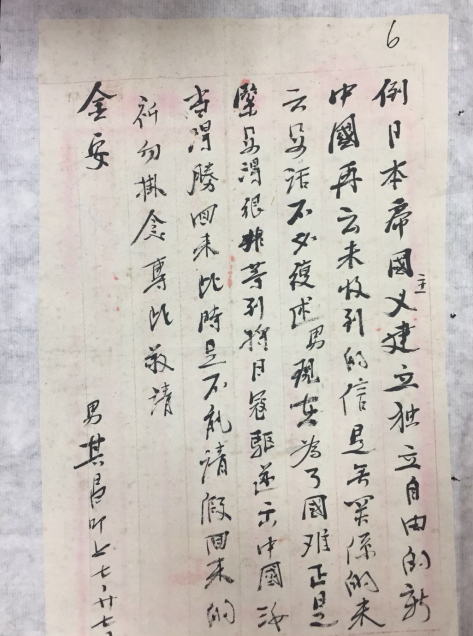 6
倒日本帝國主义建立独立自由的新
中國再云未收到的信是無関係的来
云要话不必復述男現在為了國难正是
緊要得很非等到將日寇驅逐出中國
得勝回来此時是不能請假回来的
祈勿掛念專此敬請
金安
男其昌叩上七、廿七